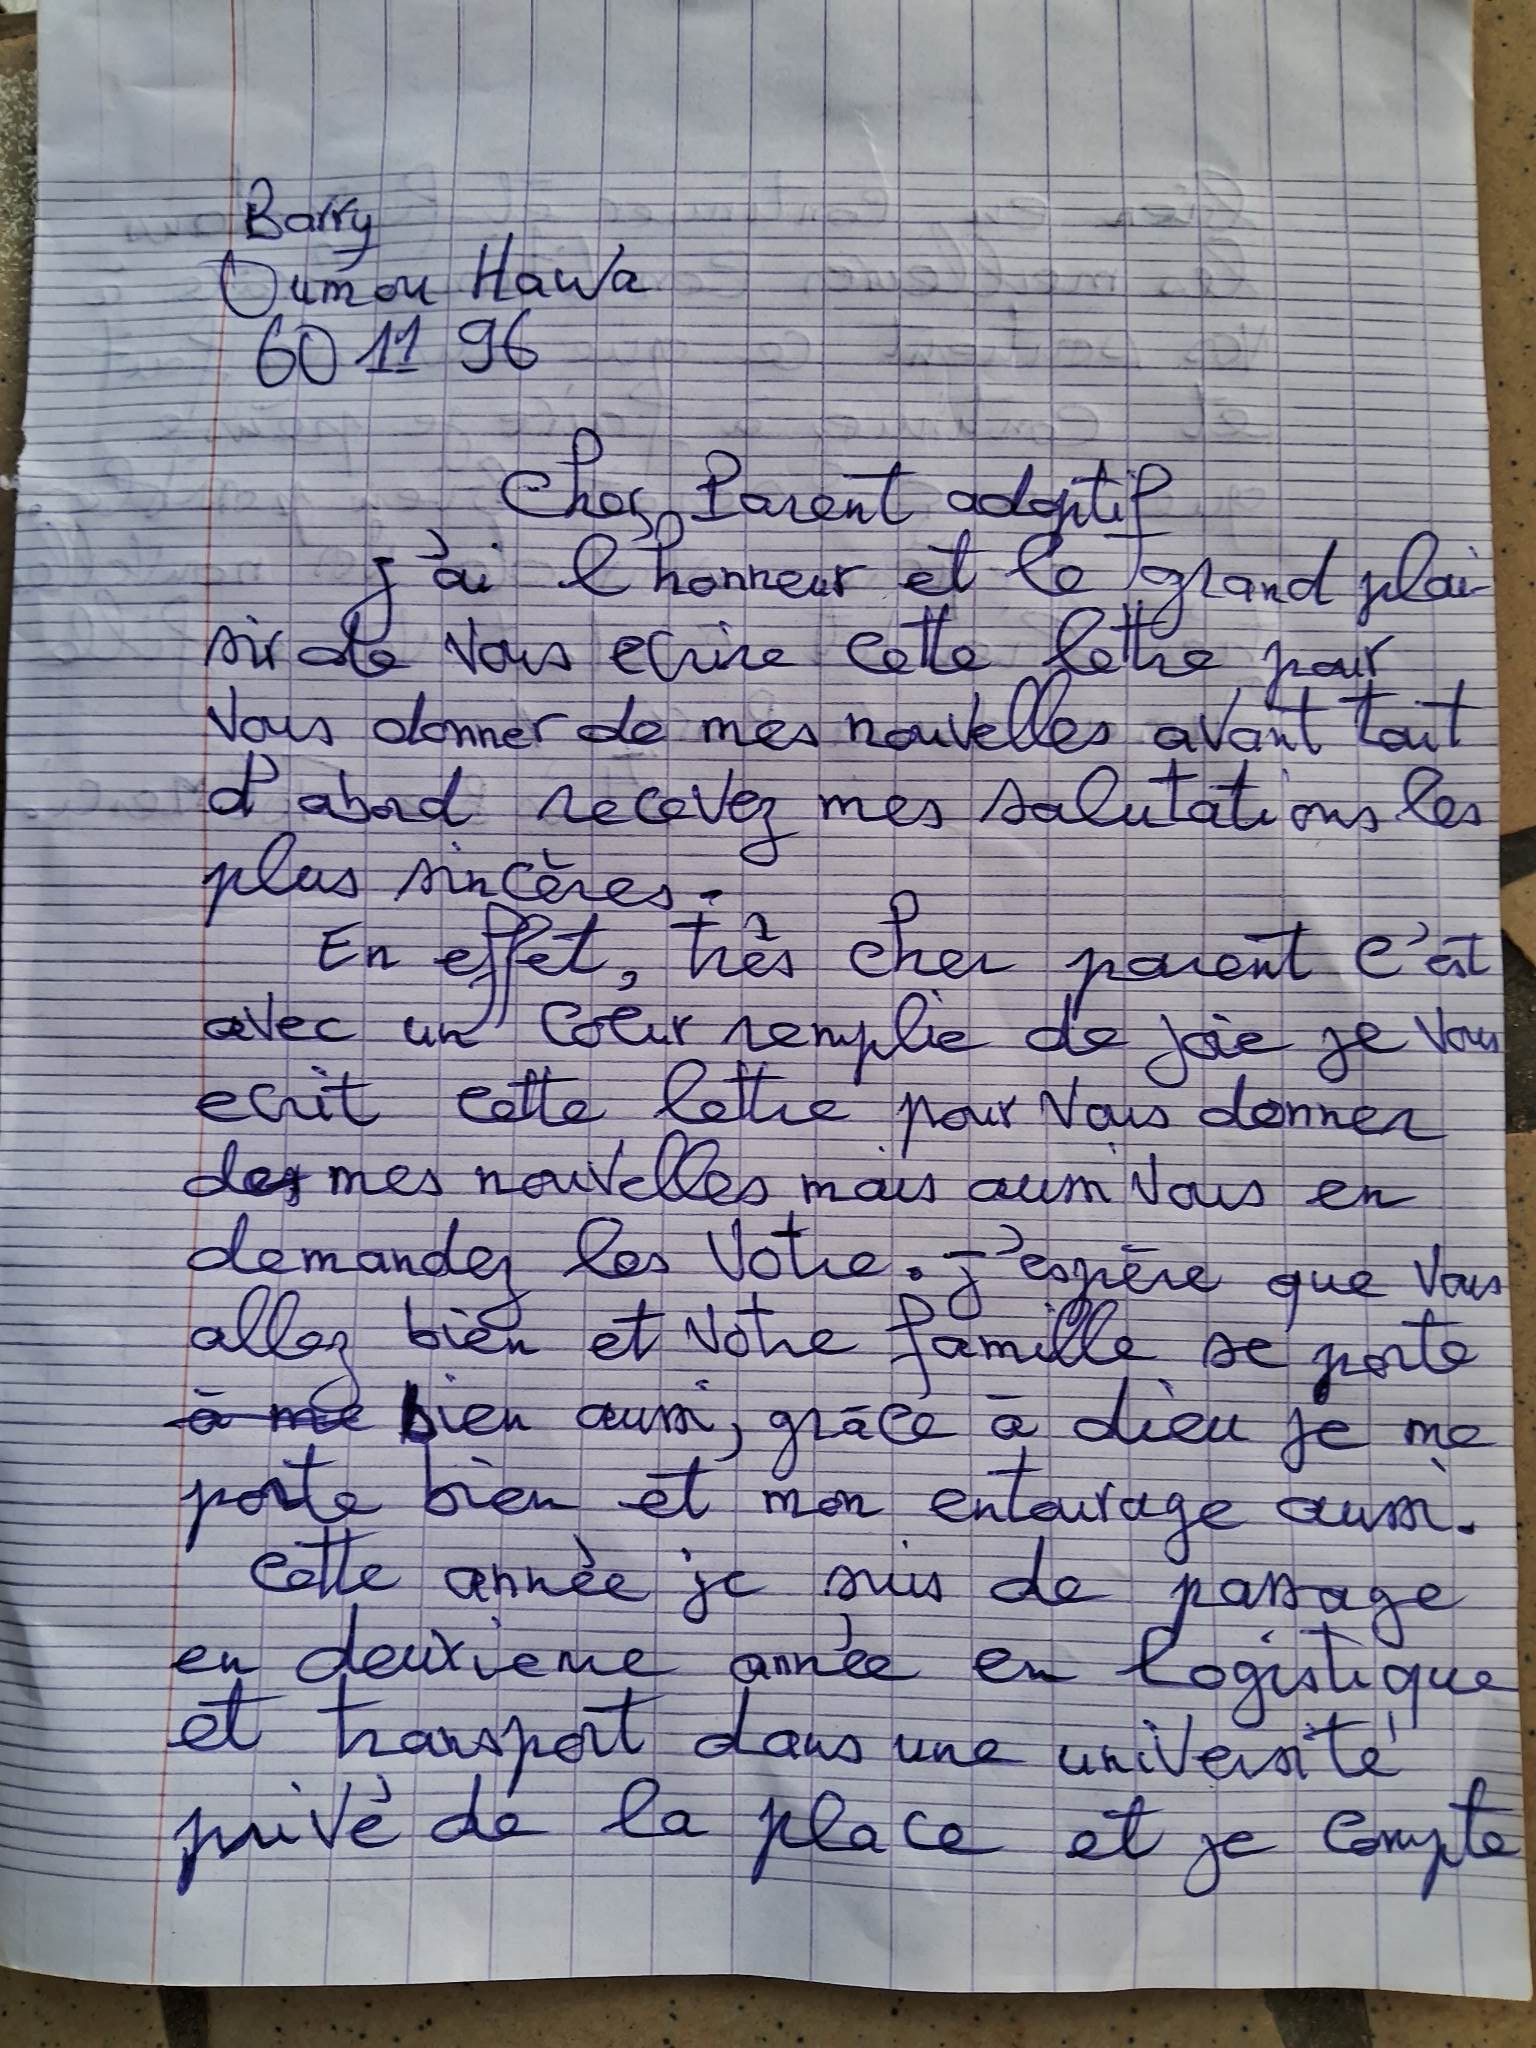 Barry
Oumou Hawa
60 11 96
Cher Parent adoptif
J'ai l'honneur et le grand plai-
sir de vous ecrire cette lettre pour
vous donner de mes nouvelles avant tout
d'abord recevez mes salutations les
plus sincères.
En effet, très cher parent c'est
avec un cœur remplie de joie je vous
ecrit cette lettre pour vous donner
des mes nouvelles mais aussi vous en
demandez les votre. J'espère que vous
allez bien et votre famille se porte
à me bien aussi, grâce à dieu je me
porte bien et mon entourage aussi.
Cette année je suis de passage
en deuxieme année en logistique
et transport dans une université
privé de la place et je compte